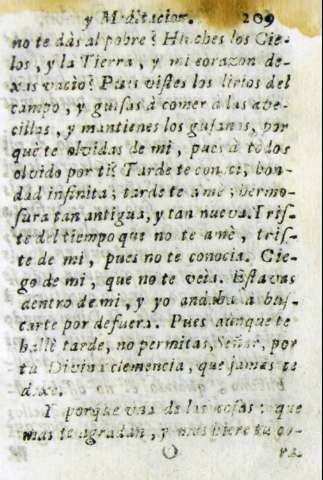 y Meditacion. 209
no te dàs al pobre? Hinches los Cie-
los, y la Tierra, y mi corazon de-
xas vacio? Pues vistes los lirios del
campo, y guisas à comer à las ave-
cillas, y mantienes los gusanos, por
què te olvidas de mi, pues à todos
olvido por ti? Tarde te conocì, bon-
dad infinita; tarde te amè; hermo-
sura tan antigua, y tan nueva. Tris-
te del tiempo que no te amè, tris-
te de mi, pues no te conocia. Cie-
go de mi, que no te veia. Estavas
dentro de mi, y yo andaba à bus-
carte por defuera. Pues aunque te
hallè tarde, no permitas, Señor, por
tu Divina clemencia, que jamàs te
dexe.
Y porque una de las cosas, que
mas te agradan, y mas hiere tu co-
ra-